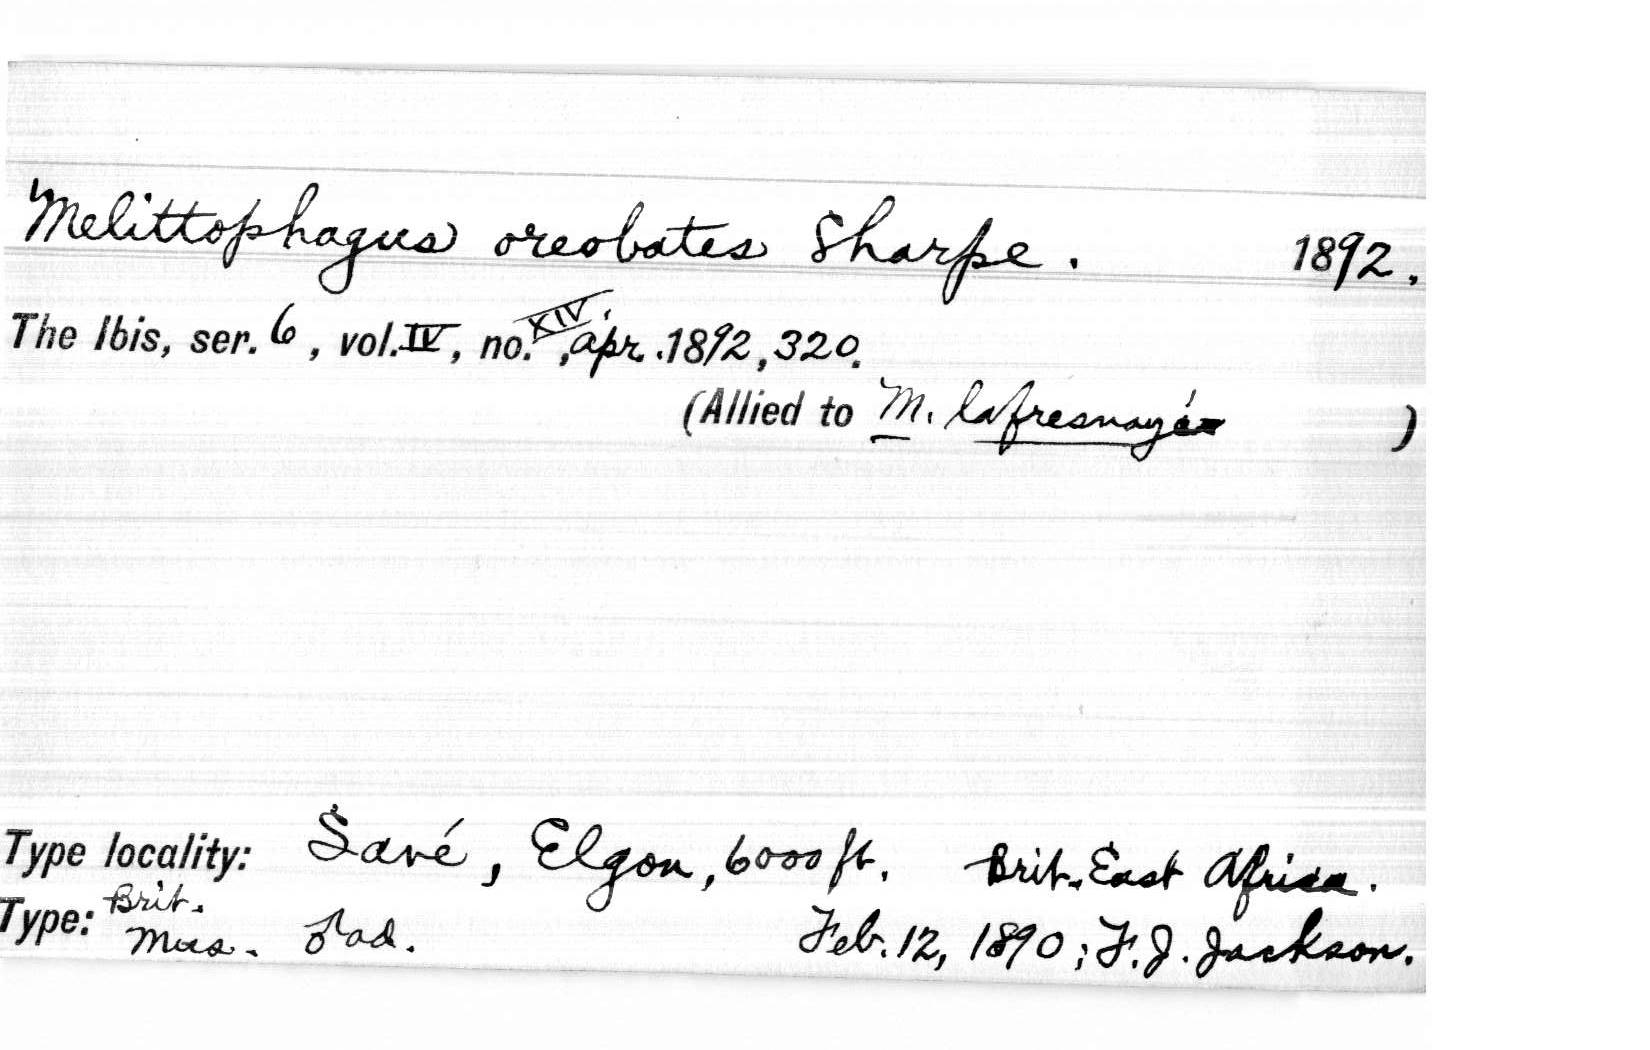 Melittophagus oreobates Sharpe. 1892.
The Ibis, ser. 6, vol. IV, no. XIV, Apr. 1892, 320.
(Allied to M. lafresnayi )
Type locality: Savé, Elgon, 6000 ft. Brit. East Africa.
Type: Brit. Mus. ad. Feb. 12, 1890; F. J. Jackson.